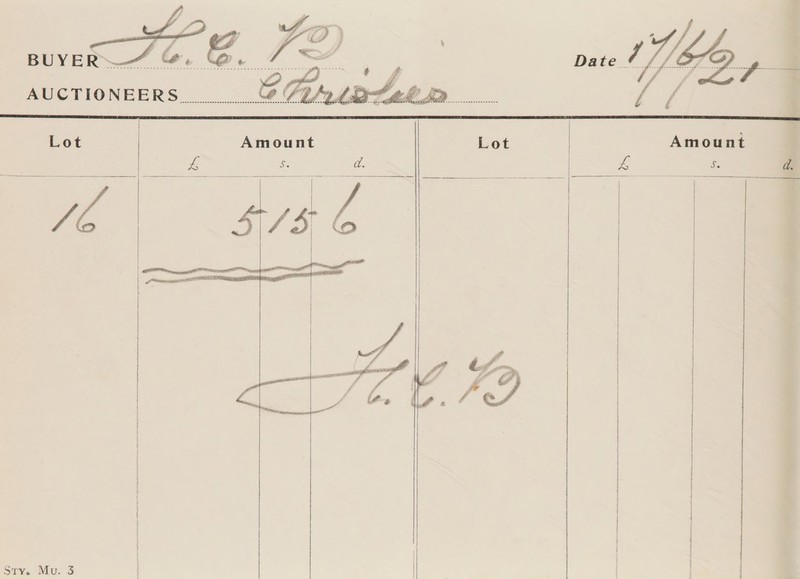 BUYER H. C. B
Date 17/6/21
AUCTIONEERS Christies
Lot Amount Lot Amount
£ s. d. £ s. d.
16 5 15 6
H. C. B
STY. MU. 3